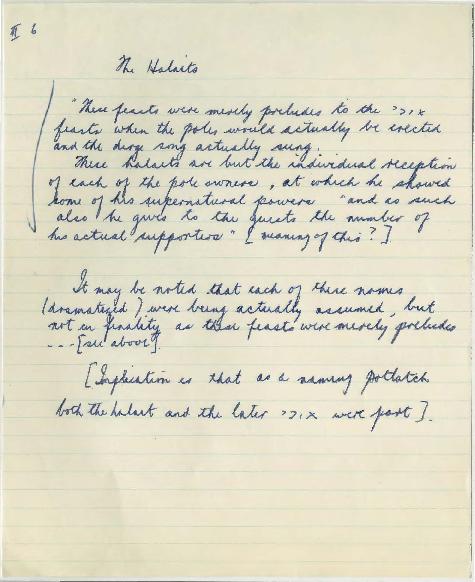 III 6
The Halaits
"These feasts were merely preludes to the
feasts when the poles would actually be erected
and the dirge song actually sung.
These halaits are but the individual reception
of each of the pole owners, at which he showed
some of his supernatural powers "and as such
also he gives to the guests the number of
his actual supporters" [meaning of this?]
It may be noted that each of these names
(dramatized) were being actually assumed, but
not in finality as these feasts were merely preludes
--- [see above].
[Implication is that as a naming potlatch
both the halait and the later were part].